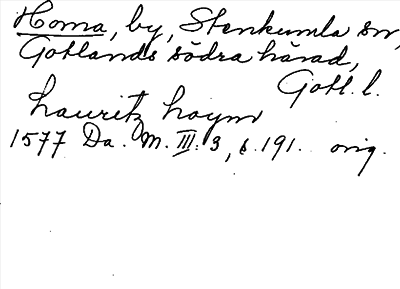 Homa, by, Stenkumla sn,
Gotlands södra härad,
Gotl. l.
Lauritz Hoym
1577 Da. M. III. 3, s. 191. orig.